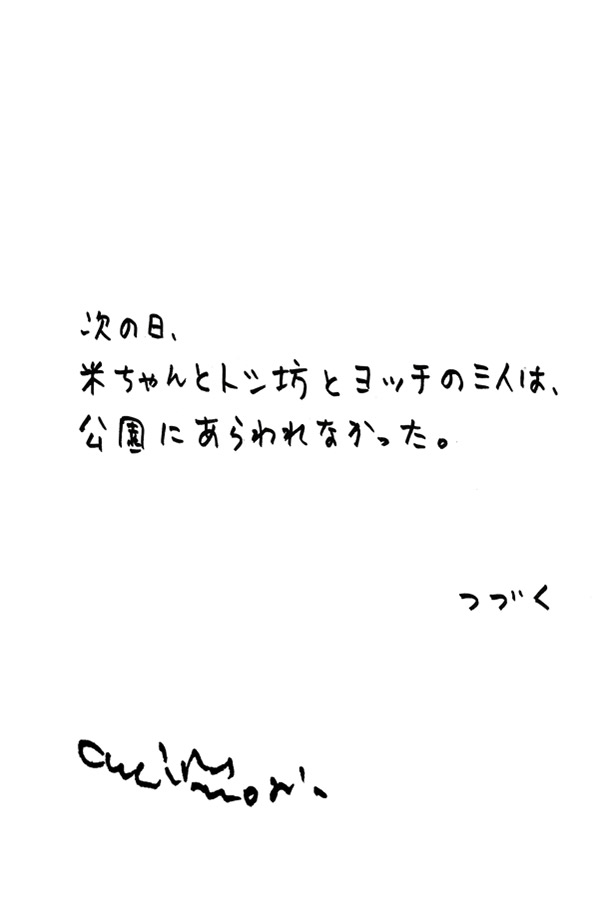 次の日、
米ちゃんとトシ坊とヨッチの三人は、
公園にあらわれなかった。
つづく